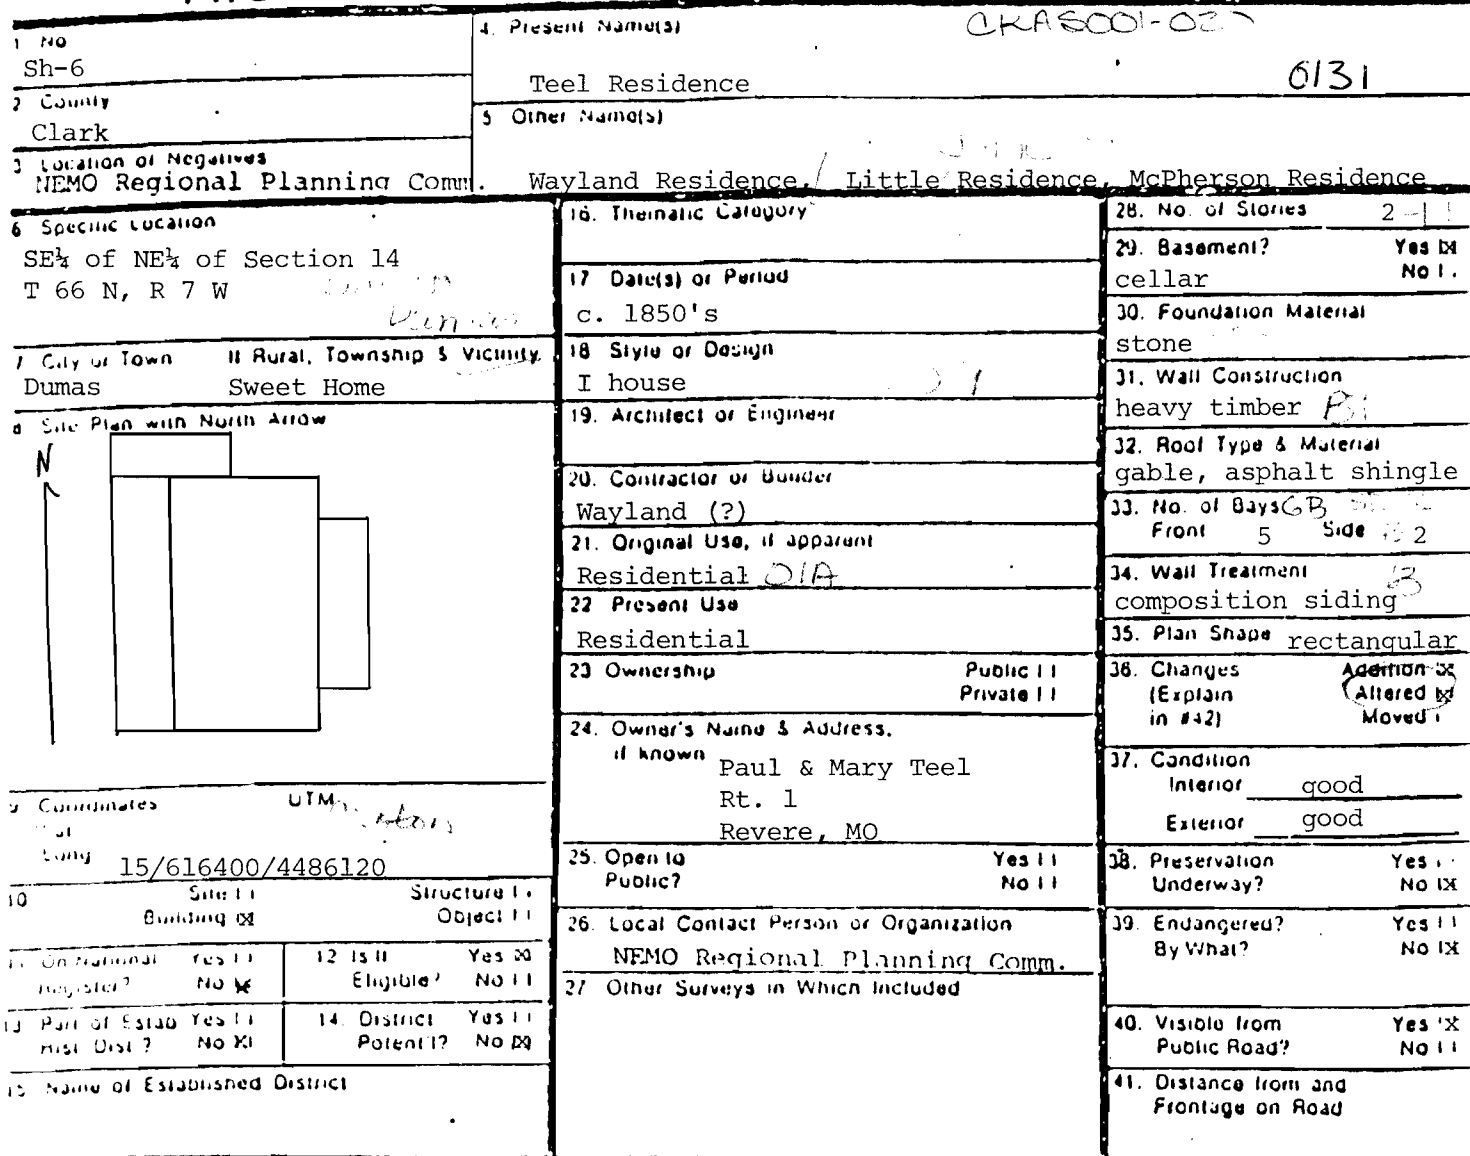 1 No
Sh-6
2 County
Clark
3 Location of Negatives
NEMO Regional Planning Comm.
4. Present Name(s)
CKAS001-02
Teel Residence
0131
5 Other Name(s)
Wayland Residence, Little Residence, McPherson Residence
6 Specific Location
SE¼ of NE¼ of Section 14
T 66 N, R 7 W
7 City or Town If Rural, Township & Vicinity
Dumas Sweet Home
8 Site Plan with North Arrow
N
9 Coordinates UTM
Lat
Long
15/616400/4486120
10 Site [ ] Structure [ ]
Building [X] Object [ ]
11 On National Yes [ ]
Register? No [X]
12 Is It Yes [X]
Eligible? No [ ]
13 Part of Estab Yes [ ]
Hist Dist? No [X]
14. District Yes [ ]
Potent'l? No [X]
15 Name of Established District
16. Thematic Category
17 Date(s) or Period
c. 1850's
18 Style or Design
I house
19. Architect or Engineer
20. Contractor or Builder
Wayland (?)
21. Original Use, if apparent
Residential 01A
22 Present Use
Residential
23 Ownership Public [ ]
Private [ ]
24. Owner's Name & Address,
if known
Paul & Mary Teel
Rt. 1
Revere, MO
25. Open to Yes [ ]
Public? No [ ]
26. Local Contact Person or Organization
NEMO Regional Planning Comm.
27 Other Surveys in Which Included
28. No. of Stories 2
29. Basement? Yes [X]
cellar No [ ]
30. Foundation Material
stone
31. Wall Construction
heavy timber
32. Roof Type & Material
gable, asphalt shingle
33. No. of Bays GB
Front 5 Side 2
34. Wall Treatment
composition siding
35. Plan Shape rectangular
36. Changes Addition [X]
(Explain Altered [X]
in #42) Moved [ ]
37. Condition
Interior good
Exterior good
38. Preservation Yes [ ]
Underway? No [X]
39. Endangered? Yes [ ]
By What? No [X]
40. Visible from Yes [X]
Public Road? No [ ]
41. Distance from and
Frontage on Road